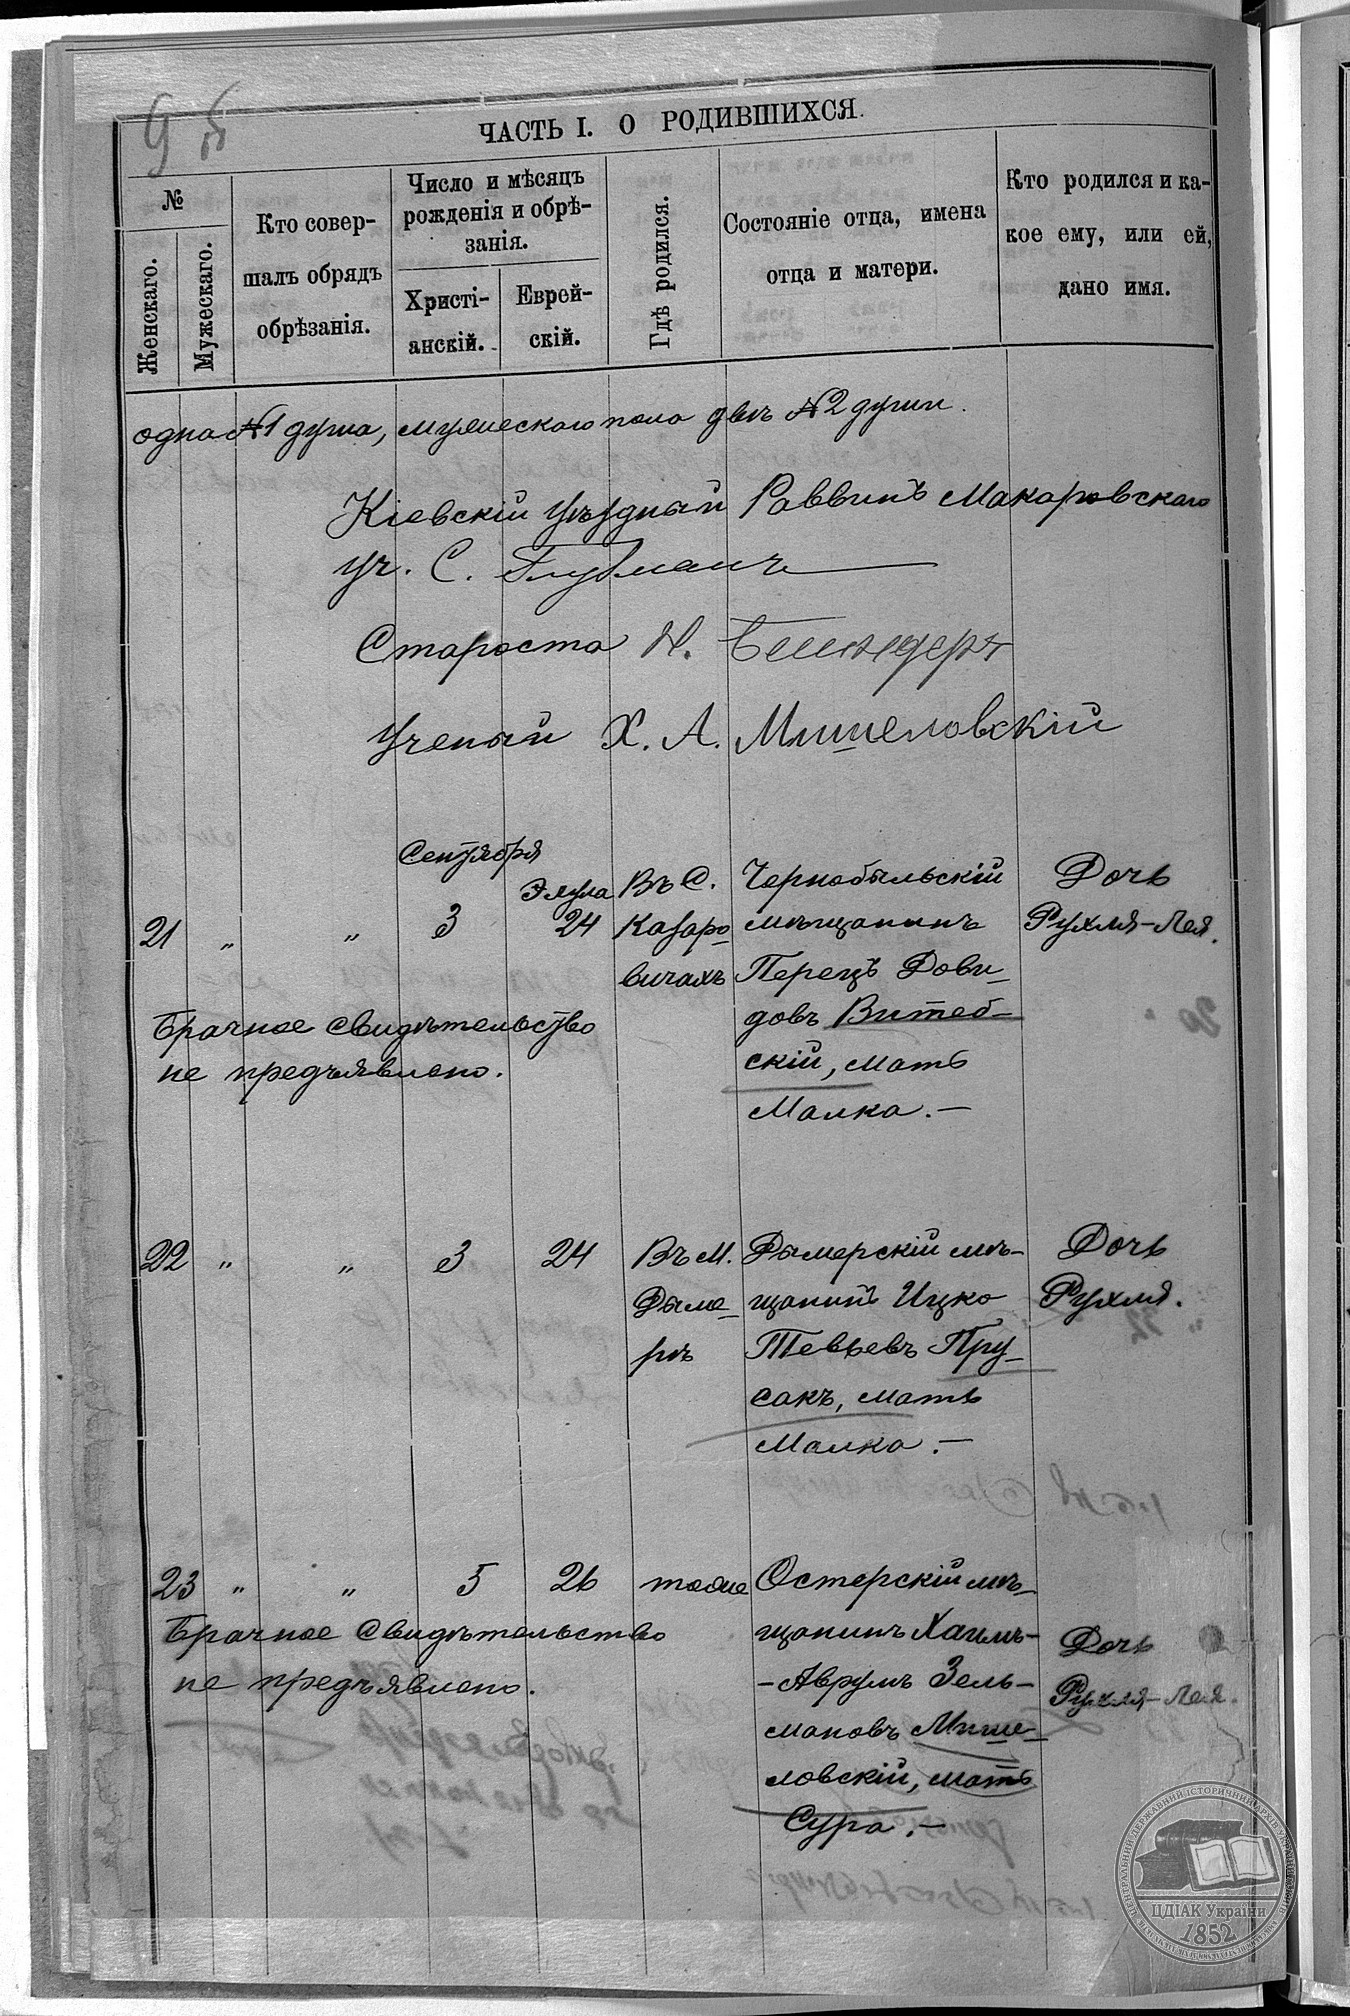 ЧАСТЬ I. О РОДИВШИХСЯ.
№
Женскаго.
Мужескаго.
Кто совер-
шалъ обрядъ
обрѣзанія.
Число и мѣсяцъ
рожденія и обрѣ-
занія.
Христі-
анскій.
Еврей-
скій.
Гдѣ родился.
Состояніе отца, имена
отца и матери.
Кто родился и ка-
кое ему, или ей,
дано имя.
одна №1 душа, мужескаго пола двѣ №2 души.
Кіевскій Уѣздный Раввинъ Макаровскаго
уч. С.
Староста
Ученый Х. А. Мишеловскій
Сентября
Элула
21 " " 3 24
Въ С.
Казаро-
вичахъ
Чернобыльскій
мѣщанинъ
Перецъ Дови-
довъ Витеб-
скій, мать
Малка.—
Дочь
Рухля-Лея.
Брачное свидѣтельство
не предъявлено.
22 " " 3 24
Въ М.
Дыме-
рѣ
Дымерскій мѣ-
щанинъ Ицко
Тевьевъ Пру-
сакъ, мать
Малка.—
Дочь
Рухля.
23 " " 5 26 тоже
Остерскій мѣ-
щанинъ Хаимъ-
-Аврумъ Зель-
мановъ Мише-
ловскій, мать
Сура.—
Дочь
Рухля-Лея.
Брачное свидѣтельство
не предъявлено.
ЦДІАК України
1852